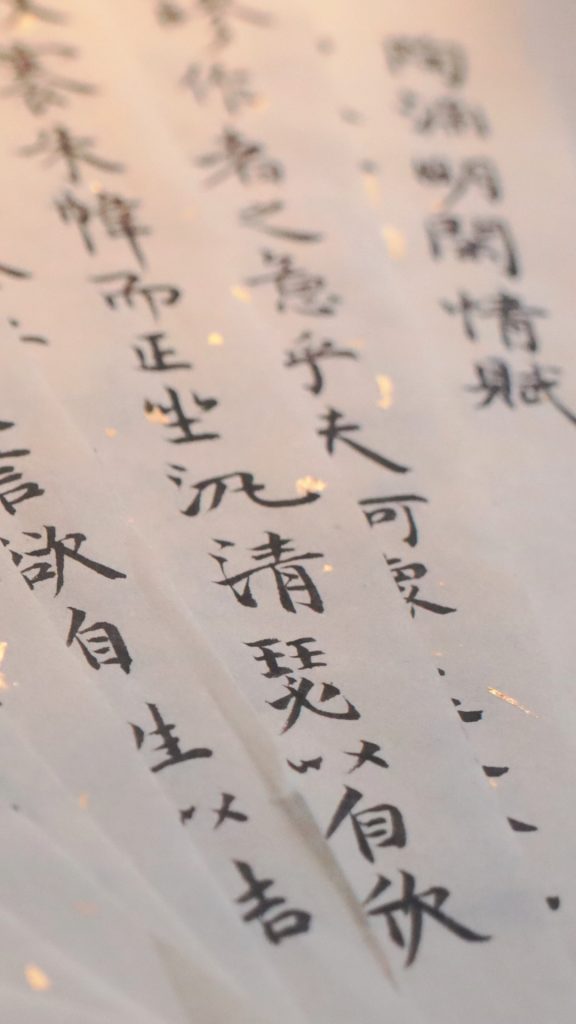 陶渊明閑情賦
作者之意乎夫可
褰朱幃而正坐汎清瑟以自欣
言欲自生以吉